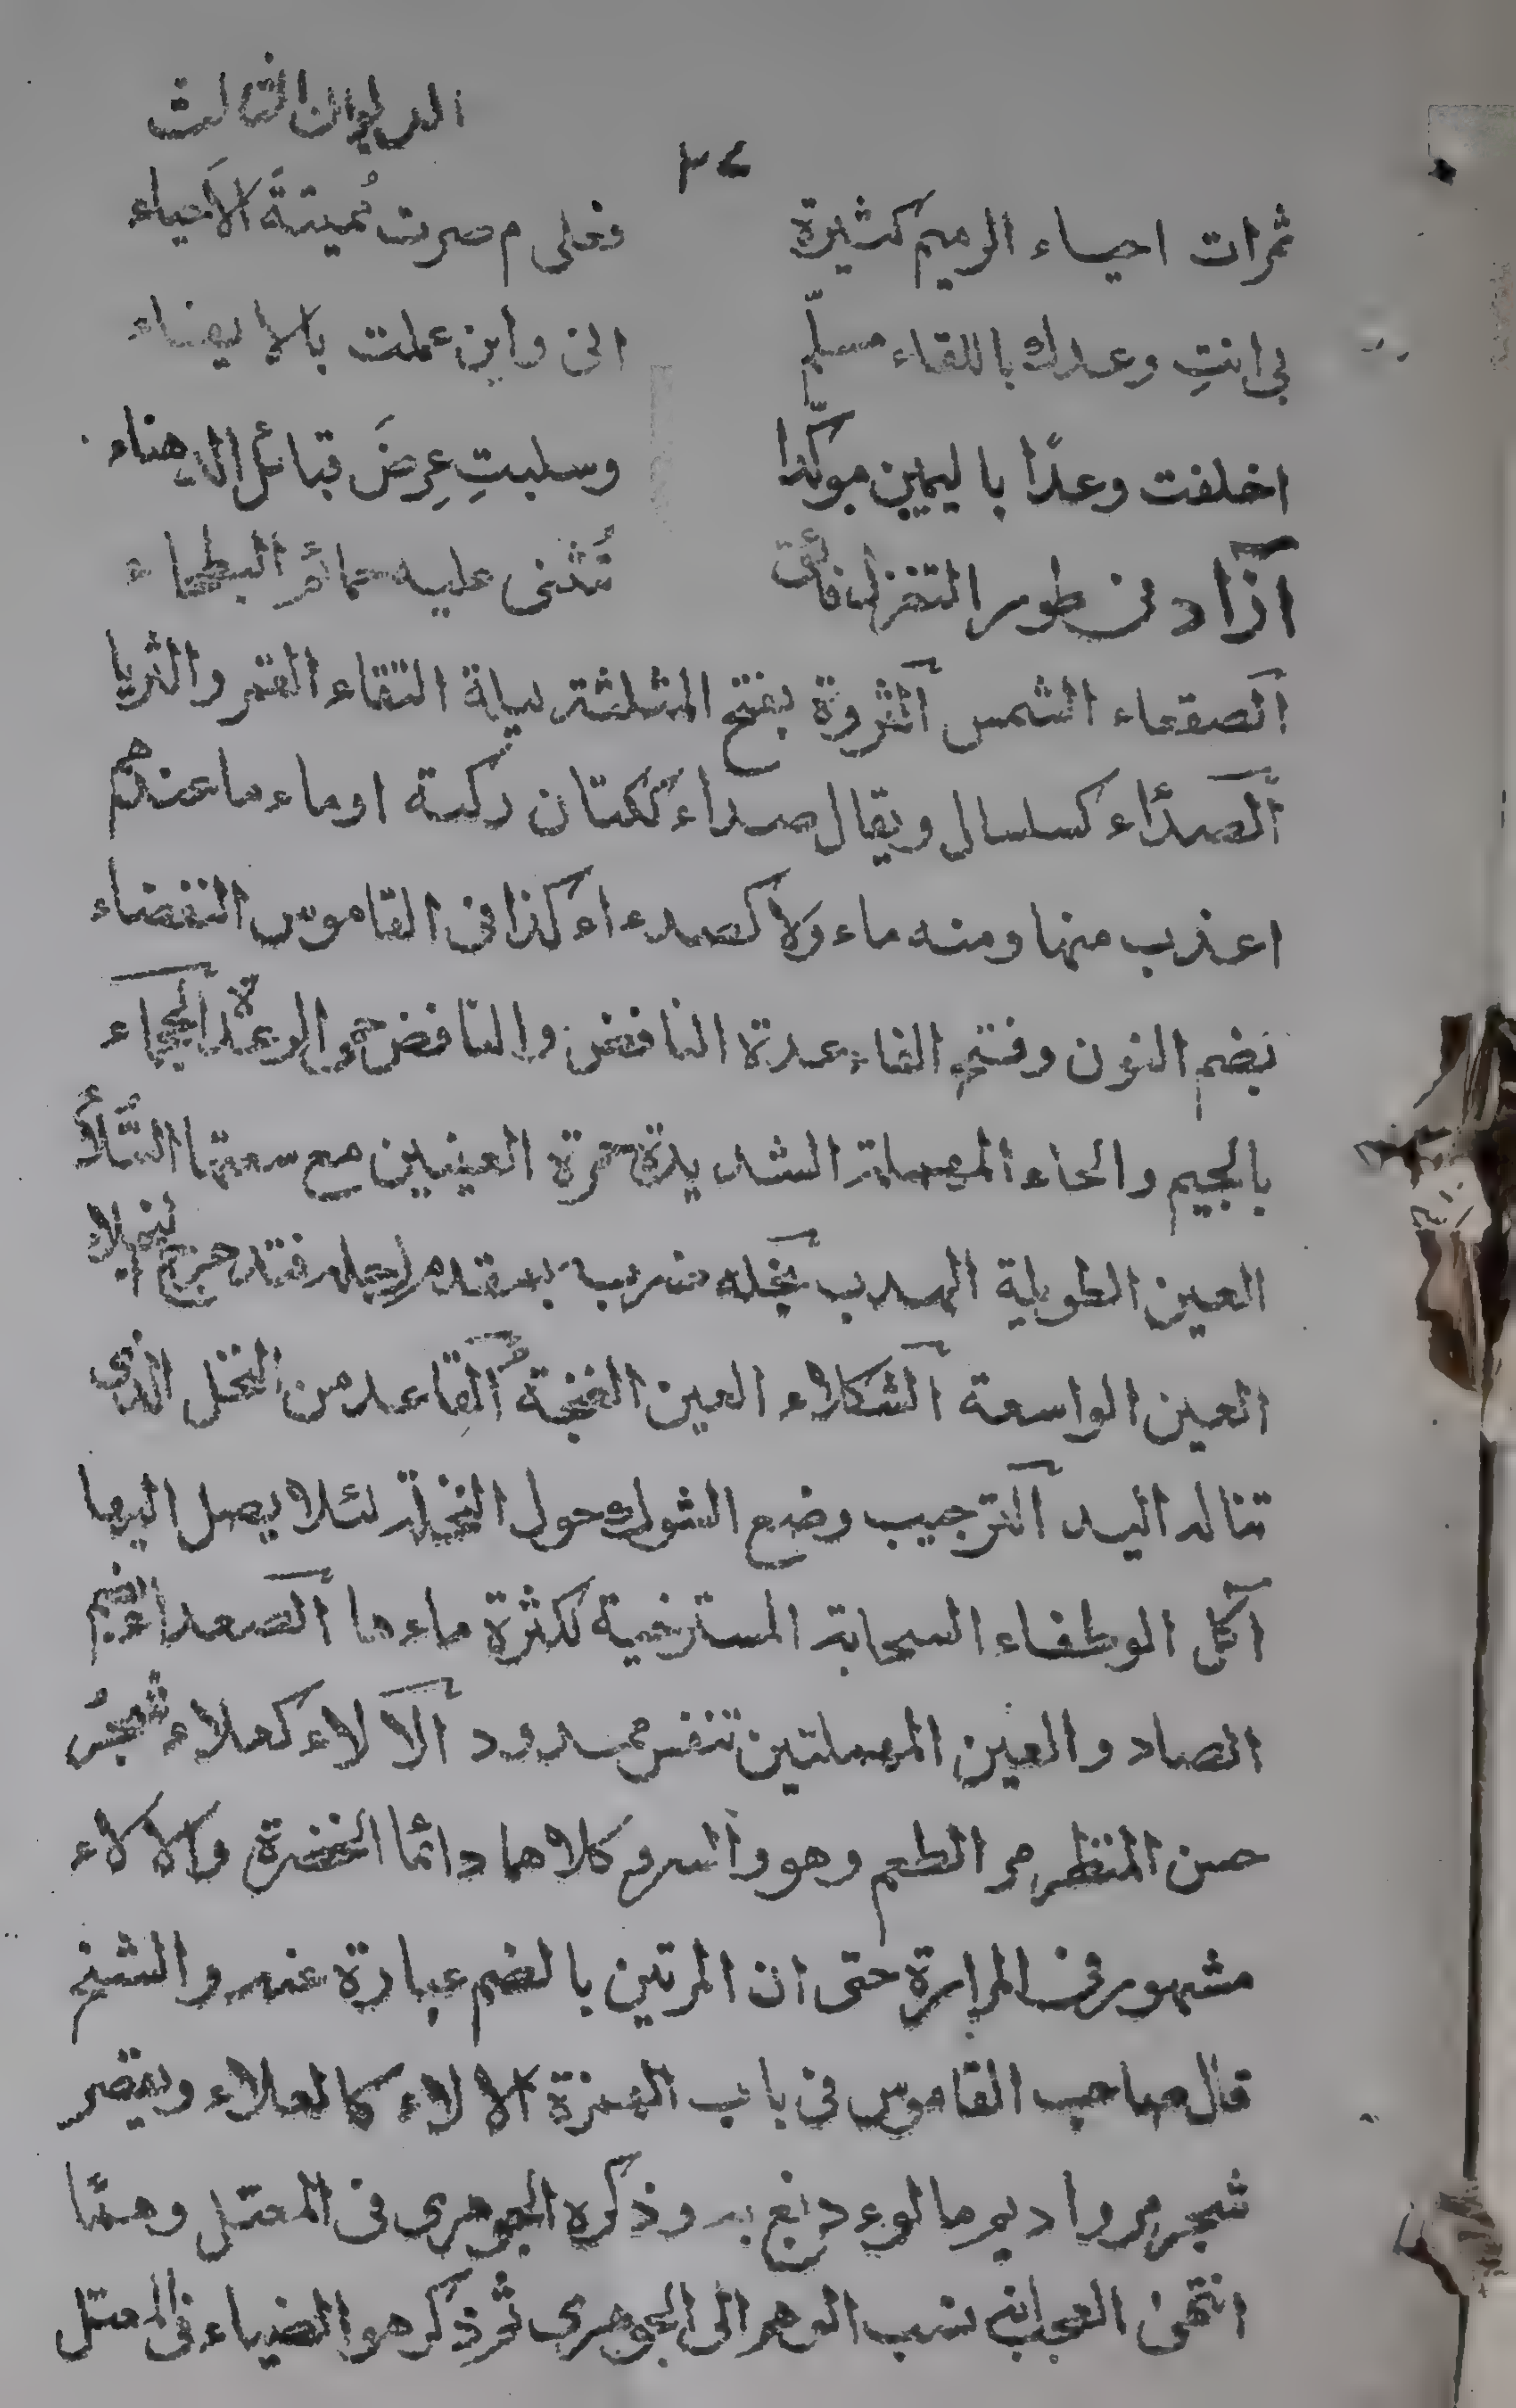 الديوان الثالث
٣٤
ثمرات احياء الرميم كثيرة فعلى م صرت مُميتةَ الاَحياء
بى انتِ وعدك باللقاء مسلّم انى واين عملت بالايفاء
اخلفت وعدًا باليمين موكّدا وسلبتِ عِرضَ قبائل الدهناء
آزاد فى طور التغزل فائق تُثنى عليه حمائم البطحاء
الصقعاء الشمس الثروة بفتح المثلثة ليلة التقاء القمر والثريا
الصدّاء كسلسال ويقال صداء ككتان ركية او ماء ما عندهم
اعذب منها ومنه ماء ولا كصدءاء كذا فى القاموس النفضاء
بضم النون وفتح الفاء عدة النافض والنافض حمى الرعدة الجحماء
بالجيم والحاء المهملة الشديدة حمرة العينين مع سعتها
العين الطويلة الهدب نجله ضربه بمقدم رجله فتدحرج النجلاء
العين الواسعة الشكلاء العين الغنجة القاعد من النخل الذى
تناله اليد الترجيب وضع الشوك حول النخلة لئلا يصل اليها
آكل الوطفاء السحابة المسترخية لكثرة ماءها الصعداء بضم
الصاد والعين المهملتين تنفس ممدود الآلاء كعلاء شجر
حسن المنظر مر الطعم وهو والسرو كلاهما دائما الخضرة والالاء
مشهور فى المرارة حتى ان المرتين بالضم عبارة عنه والشيخ
قال صاحب القاموس فى باب الهمزة الالاء كالعلاء ويقصر
شجر مر واديم مالوء دبغ به وذكره الجوهرى فى المعتل وهمًا
انتهى العجب انه نسب الوهم الى الجوهرى ثم ذكر هو الضياء فى المعتل